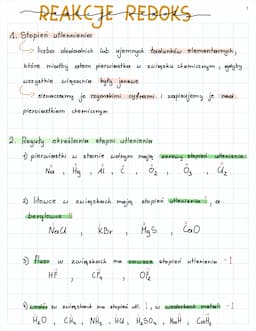 REAKCJE REDOKS
1
1. Stopień utlenienia
liczba dodatnich lub ujemnych ładunków elementarnych,
które miałby atom pierwiastka w związku chemicznym, gdyby
wszystkie wiązania były jonowe
oznaczamy je rzymskimi cyframi i zapisujemy je nad
pierwiastkiem chemicznym
2. Reguły określania stopni utlenienia
1) pierwiastki w stanie wolnym mają zerowy stopień utlenienia
Na , Hg , Al , C , O₂ , O₃ , Cl₂
2) litowce w związkach mają stopień utlenienia I , a
berylowce II
NaCl , KBr , MgS , CaO
3) fluor w związkach ma zawsze stopień utlenienia -I
HF , CF₄ , OF₂
4) wodór w związkach ma stopień utl. I , w wodorkach metali -I
H₂O , CH₄ , NH₃ , HCl , H₂SO₄ , NaH , CaH₂